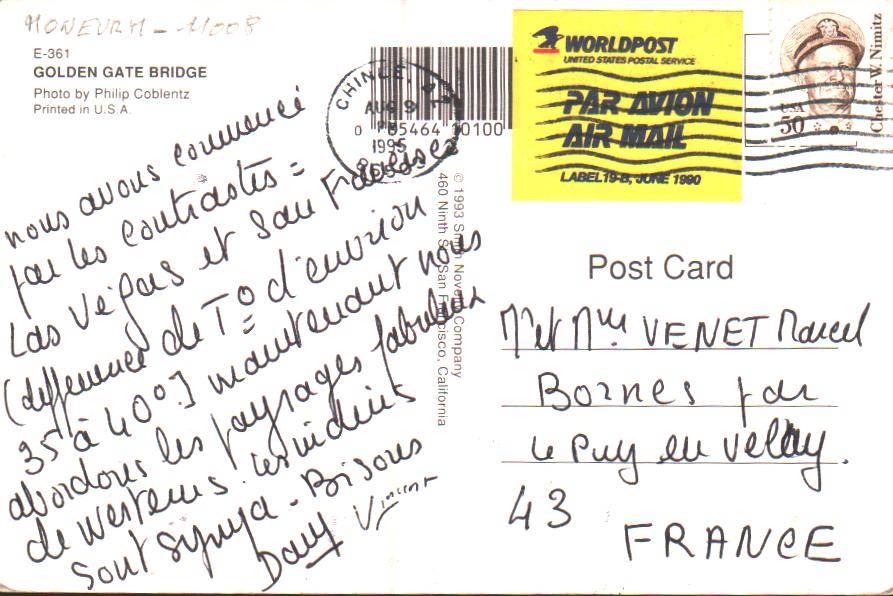 MONEURM - 11008
E-361
GOLDEN GATE BRIDGE
Photo by Philip Coblentz
Printed in U.S.A.
nous avons commencé
par les contrastes =
Las Végas et San
(différence de T° d'environ
35 à 40°) maintenant nous
abordons les paysages fabuleux
de westerns. les indiens
sont sympa - Bisous
Dany Vincent
CHINLE, AZ
AUG 9
PM
1995
0 65464 10100
© 1993 Smith Novelty Company
460 Ninth St. San Francisco, California
WORLDPOST
UNITED STATES POSTAL SERVICE
PAR AVION
AIR MAIL
LABEL 19-B, JUNE 1990
USA
50
Chester W. Nimitz
Post Card
Mr et Mme VENET Marcel
Bornes par
Le Puy en Velay.
43
FRANCE